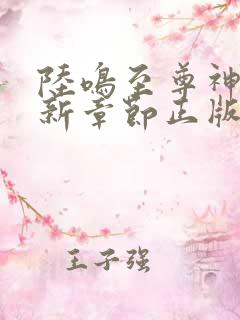 陸鳴至尊神
新章節正版
王子强